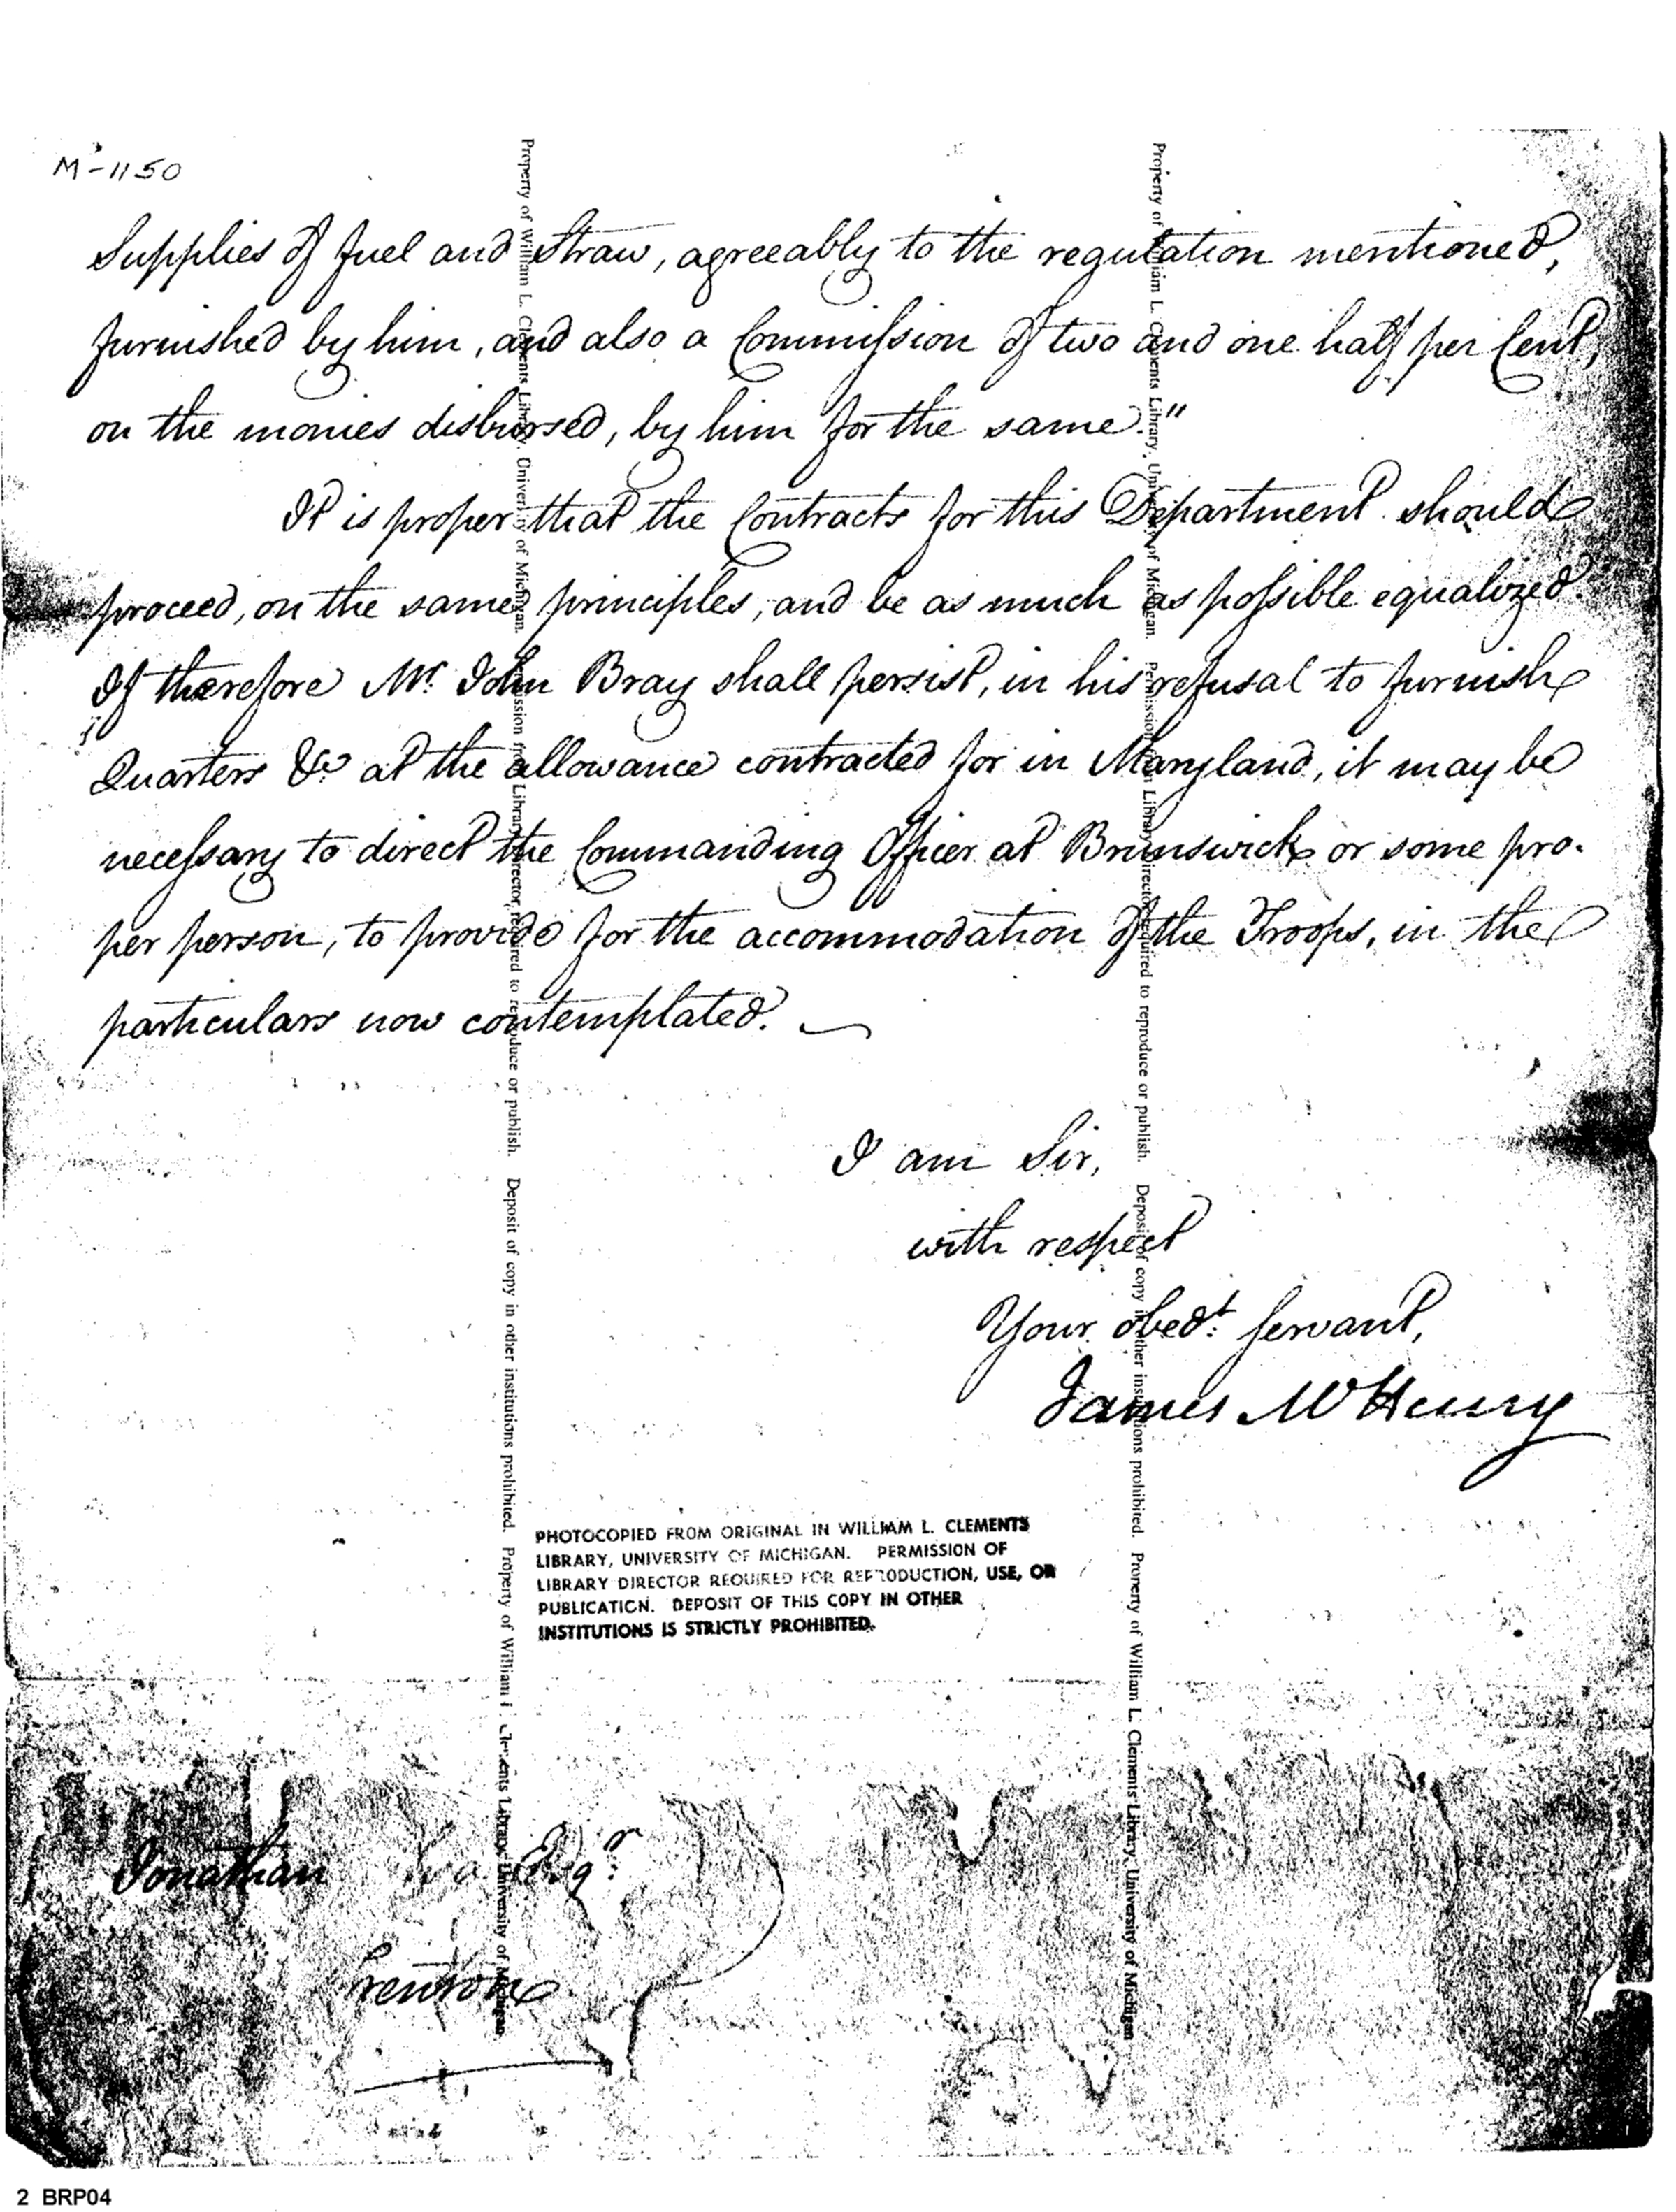 M-1150
Supplies of fuel and Straw, agreeably to the regulation mentioned,
furnished by him, and also a Commission of two and one half per Cent,
on the monies disbursed, by him for the same."
It is proper that the Contracts for this Department should
proceed, on the same principles, and be as much as possible equalized.
If therefore Mr. John Bray shall persist, in his refusal to furnish
Quarters &c at the allowance contracted for in Maryland, it may be
necessary to direct the Commanding Officer at Brunswick or some pro-
per person, to provide for the accommodation of the Troops, in the
particulars now contemplated.
I am Sir,
with respect
Your obedt. Servant,
James McHenry
PHOTOCOPIED FROM ORIGINAL IN WILLIAM L. CLEMENTS
LIBRARY, UNIVERSITY OF MICHIGAN. PERMISSION OF
LIBRARY DIRECTOR REQUIRED FOR REPRODUCTION, USE, OR
PUBLICATION. DEPOSIT OF THIS COPY IN OTHER
INSTITUTIONS IS STRICTLY PROHIBITED.
Jonathan Esqr.
Trenton
Property of William L. Clements Library, University of Michigan. Permission from Library Director required to reproduce or publish. Deposit of copy in other institutions prohibited. Property of William L. Clements Library, University of Michigan
Property of William L. Clements Library, University of Michigan. Permission from Library Director required to reproduce or publish. Deposit of copy in other institutions prohibited. Property of William L. Clements Library, University of Michigan
2 BRP04